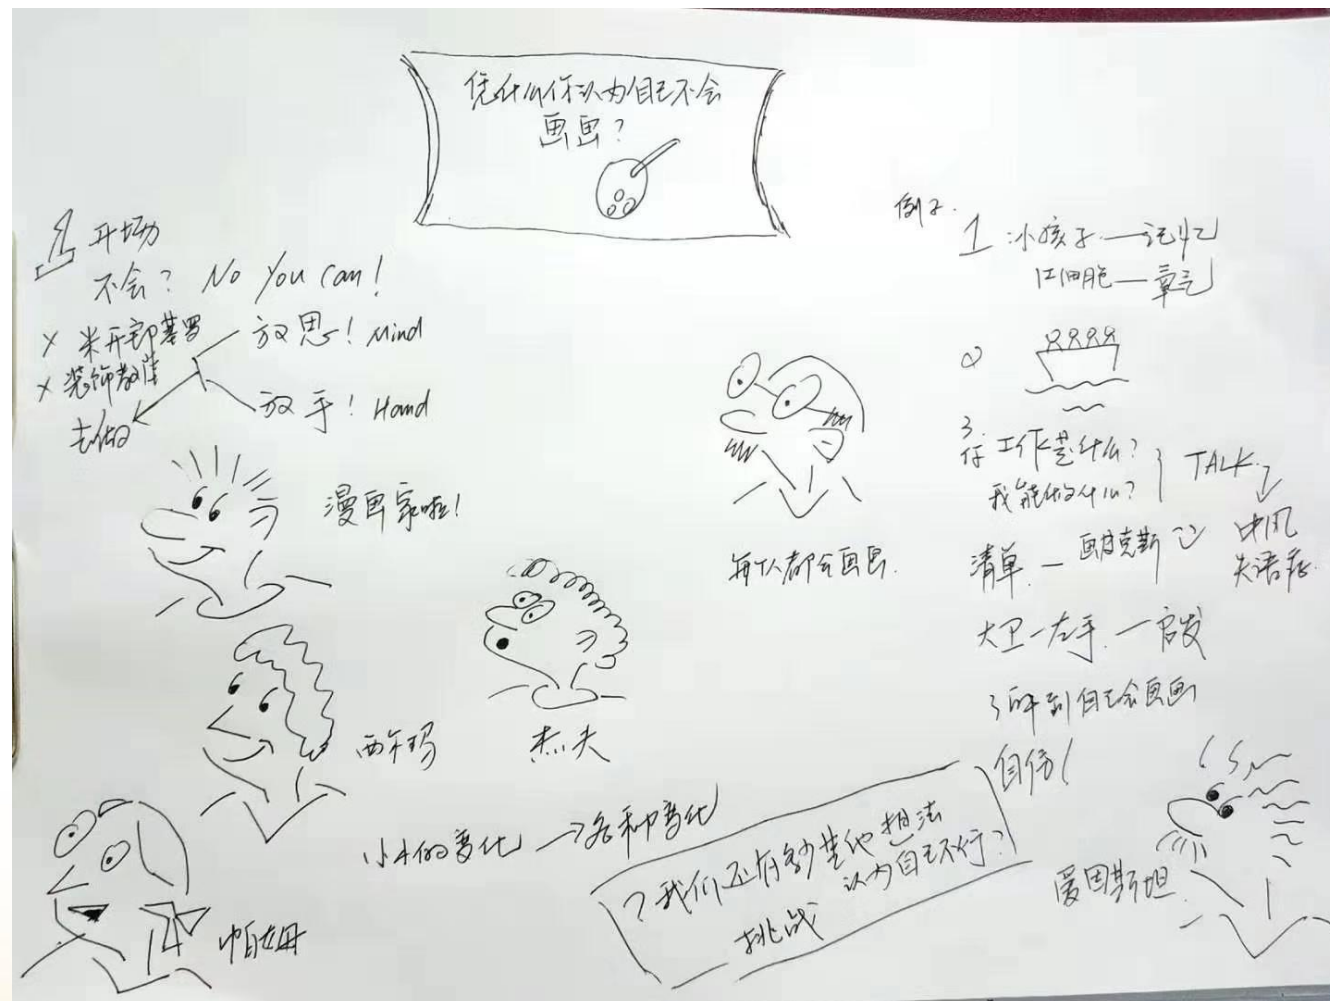 凭什么你认为自己不会
画画？
1 开场
不会？ No You Can！
× 米开朗基罗
× 装饰教堂
放思！ Mind
放手！ Hand
去做
漫画家啦！
西尔玛
杰夫
帕姆
小小的变化 → 各种变化
每个人都会画画.
例子.
1 小孩子 — 记忆
红细胞 — 氧气
2
3.
你工作是什么？
我能做什么？
TALK
中风
失语症.
清单. — 画
大卫 — 左手. — 启发
了解到自己会画画
自信！
爱因斯坦
？我们还有多少其他想法
认为自己不行？
挑战